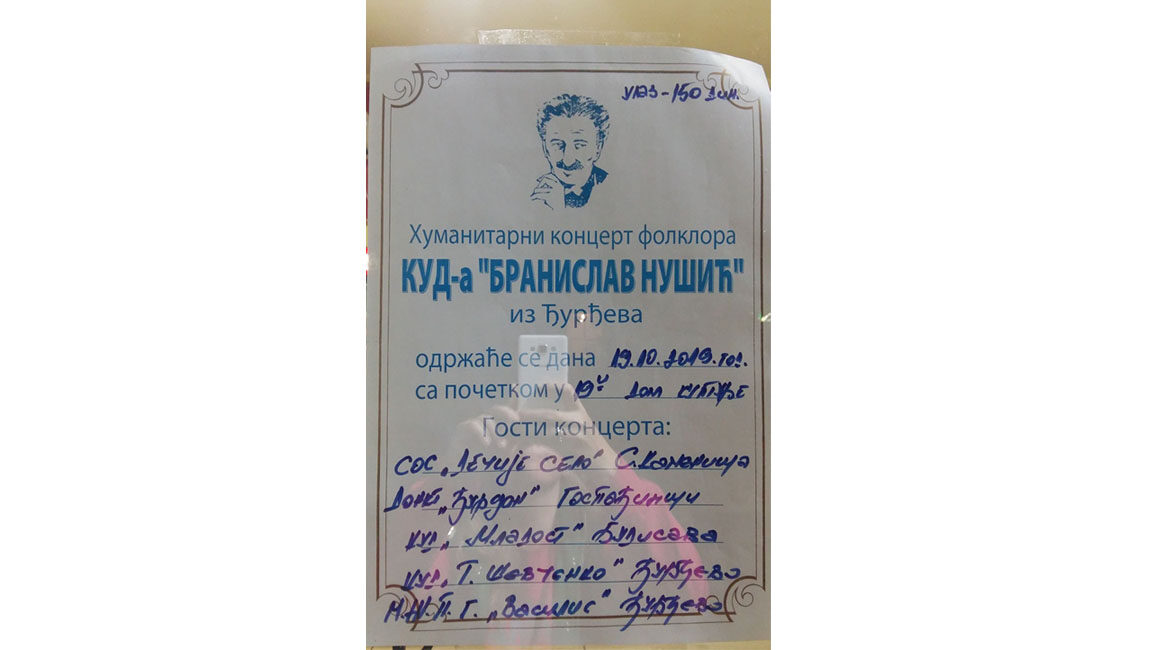 УЛАЗ - 150 ДИН.
Хуманитарни концерт фолклора
КУД-а "БРАНИСЛАВ НУШИЋ"
из Ђурђева
одржаће се дана 19.10.2019. год.
са почетком у 19 ч ДОМ КУЛТУРЕ
Гости концерта:
СОС „ДЕЧИЈЕ СЕЛО" С. Каменица
„Ђурдон" Госпођинци
КУД „Младост" Будисава
КУД „Т. Шевченко" Ђурђево
М.Ж.П.Г. „Василис" Ђурђево